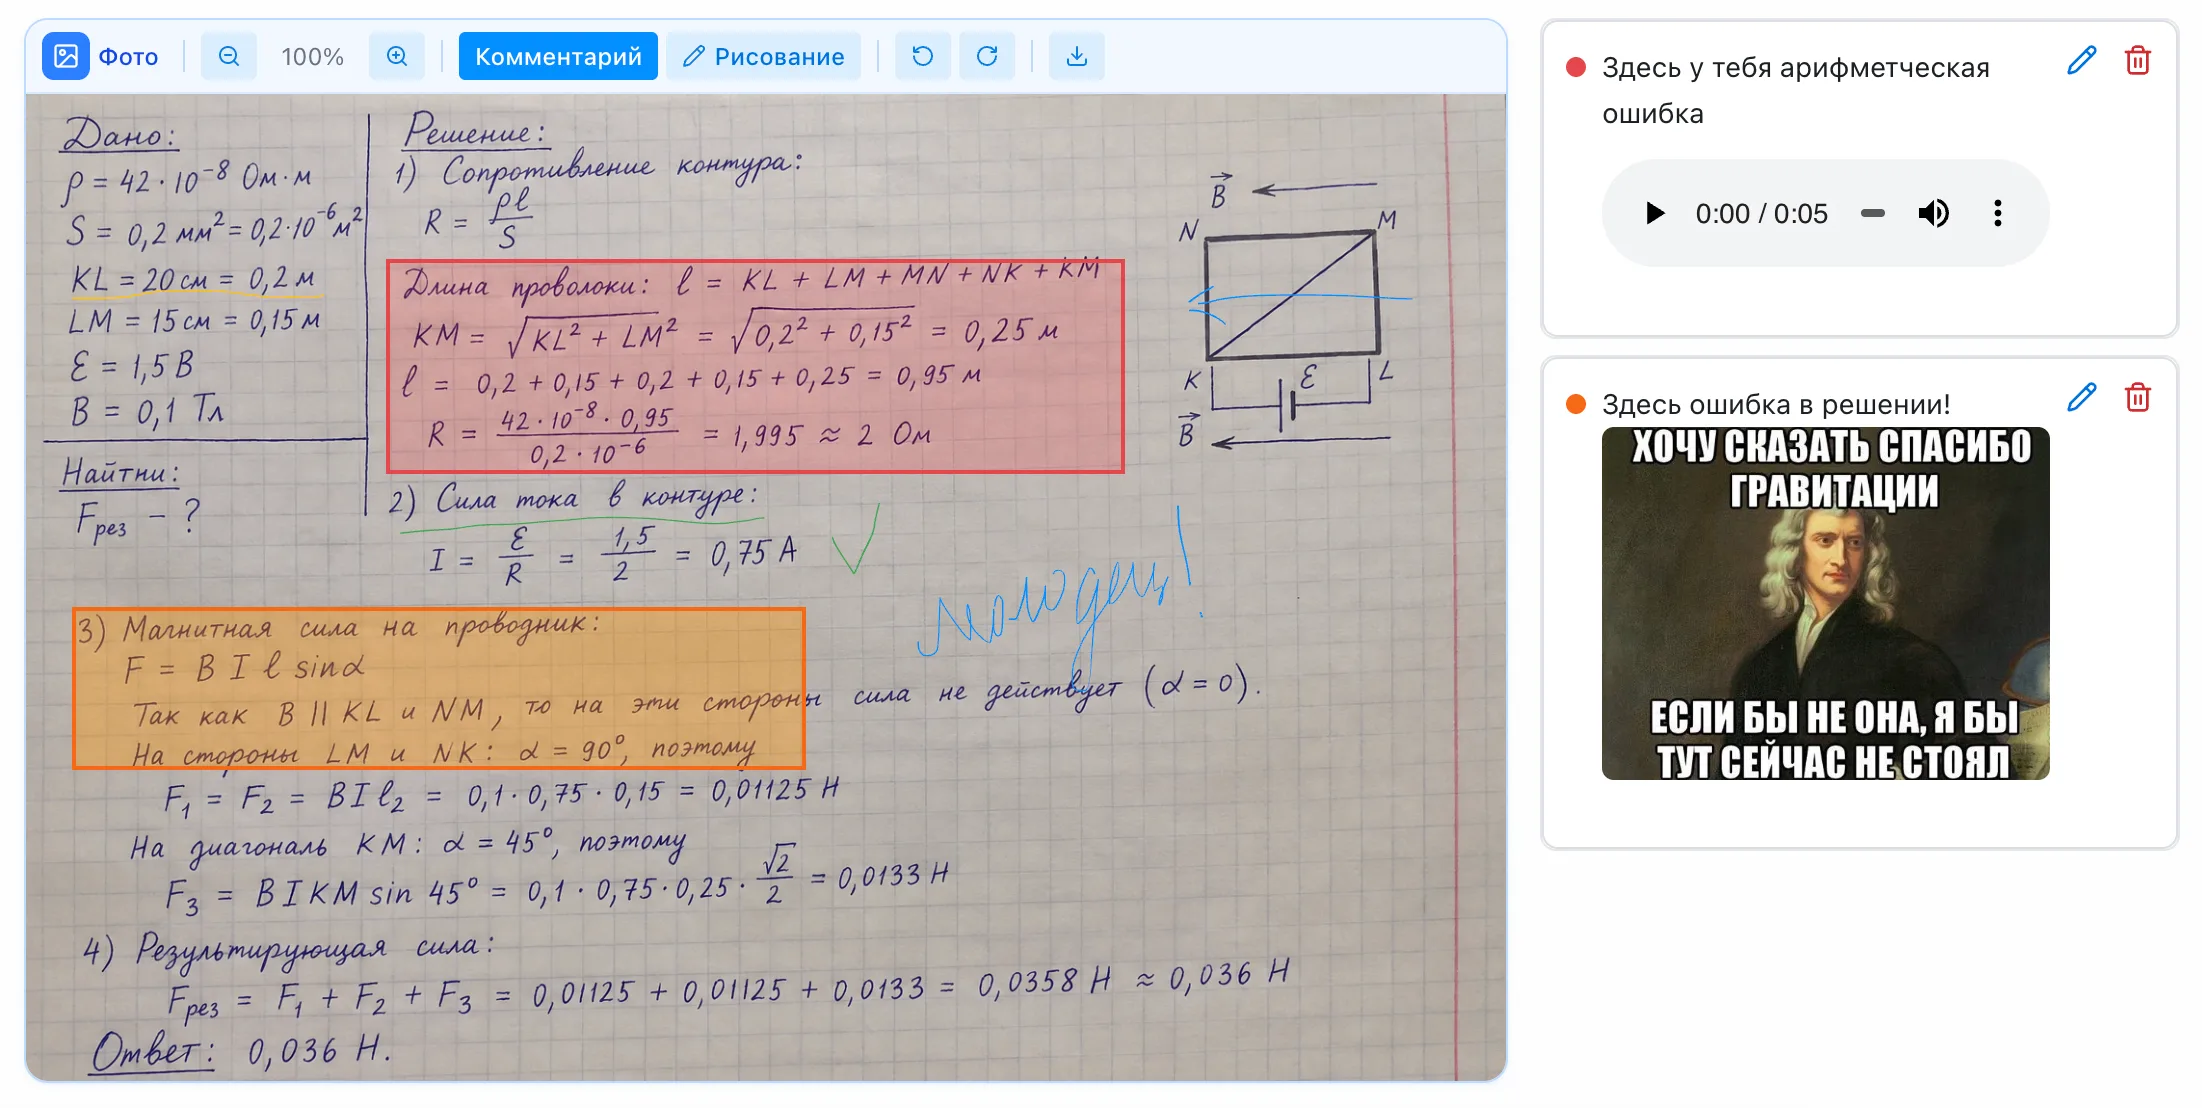 Фото
100%
Комментарий
Рисование
Дано:
ρ = 42 · 10⁻⁸ Ом·м
S = 0,2 мм² = 0,2·10⁻⁶ м²
KL = 20 см = 0,2 м
LM = 15 см = 0,15 м
Ɛ = 1,5 В
B = 0,1 Тл
Найтни:
Fрез – ?
Решение:
1) Сопротивление контура:
R = ρℓ/S
Длина проволоки: ℓ = KL + LM + MN + NK + KM
KM = √KL² + LM² = √0,2² + 0,15² = 0,25 м
ℓ = 0,2 + 0,15 + 0,2 + 0,15 + 0,25 = 0,95 м
R = 42 · 10⁻⁸ · 0,95 / 0,2 · 10⁻⁶ = 1,995 ≈ 2 Ом
2) Сила тока в контуре:
I = Ɛ/R = 1,5/2 = 0,75 А
B
N M
K Ɛ L
B
молодец!
3) Магнитная сила на проводник:
F = B I ℓ sinα
Так как B || KL и NM, то на эти стороны сила не действует (α = 0).
На стороны LM и NK: α = 90°, поэтому
F₁ = F₂ = B I ℓ₂ = 0,1 · 0,75 · 0,15 = 0,01125 Н
На диагональ KM: α = 45°, поэтому
F₃ = B I KM sin 45° = 0,1 · 0,75 · 0,25 · √2/2 = 0,0133 Н
4) Результирующая сила:
Fрез = F₁ + F₂ + F₃ = 0,01125 + 0,01125 + 0,0133 = 0,0358 Н ≈ 0,036 Н
Ответ: 0,036 Н.
Здесь у тебя арифметческая
ошибка
0:00 / 0:05
Здесь ошибка в решении!
ХОЧУ СКАЗАТЬ СПАСИБО
ГРАВИТАЦИИ
ЕСЛИ БЫ НЕ ОНА, Я БЫ
ТУТ СЕЙЧАС НЕ СТОЯЛ